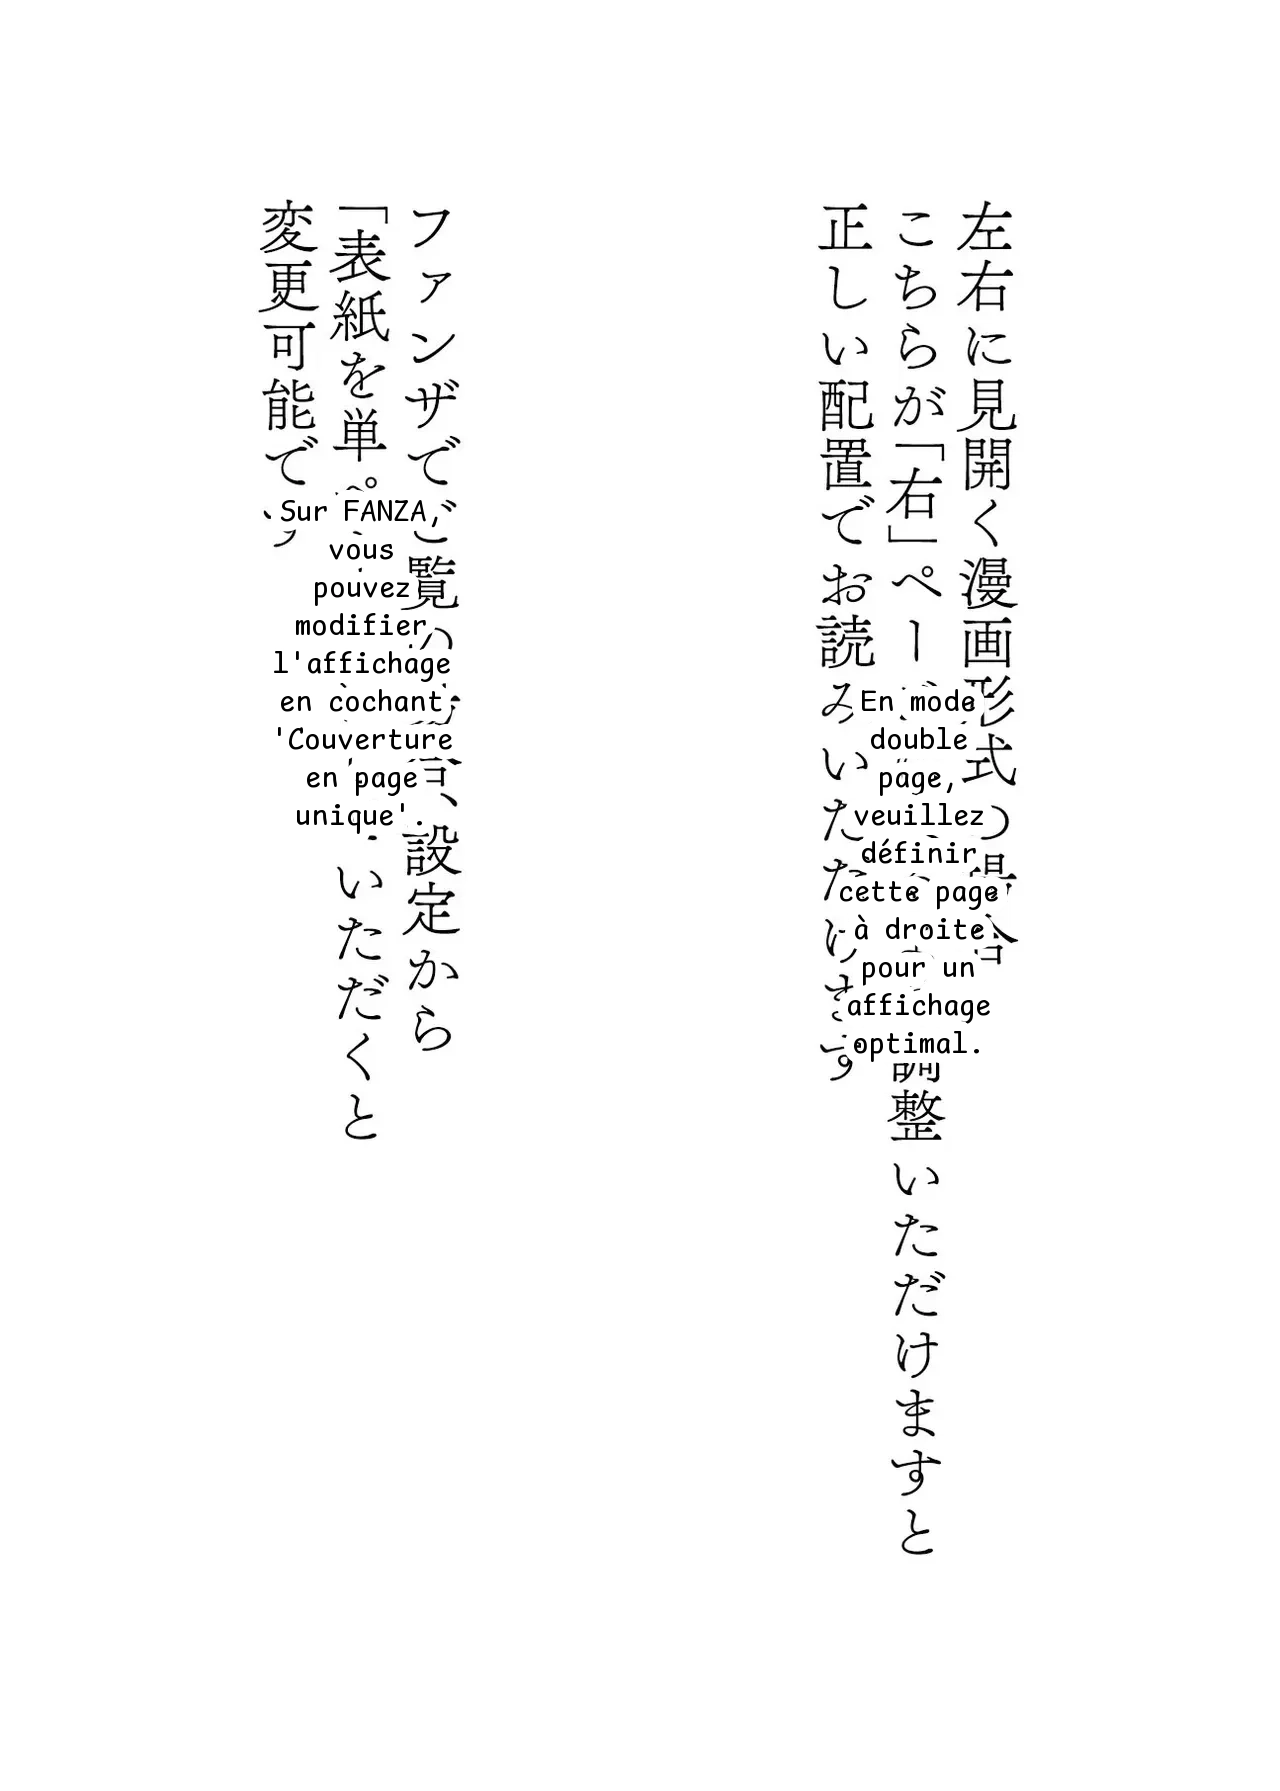 左右に見開く漫画形式の場合
こちらが「右」ペー
調整いただけますと
正しい配置でお読みいただけます
En mode
double
page,
veuillez
définir
cette page
à droite
pour un
affichage
optimal.
ファンザでご覧の場合、設定から
「表紙を単ペ
いただくと
変更可能です
Sur FANZA,
vous
pouvez
modifier
l'affichage
en cochant
'Couverture
en page
unique'.